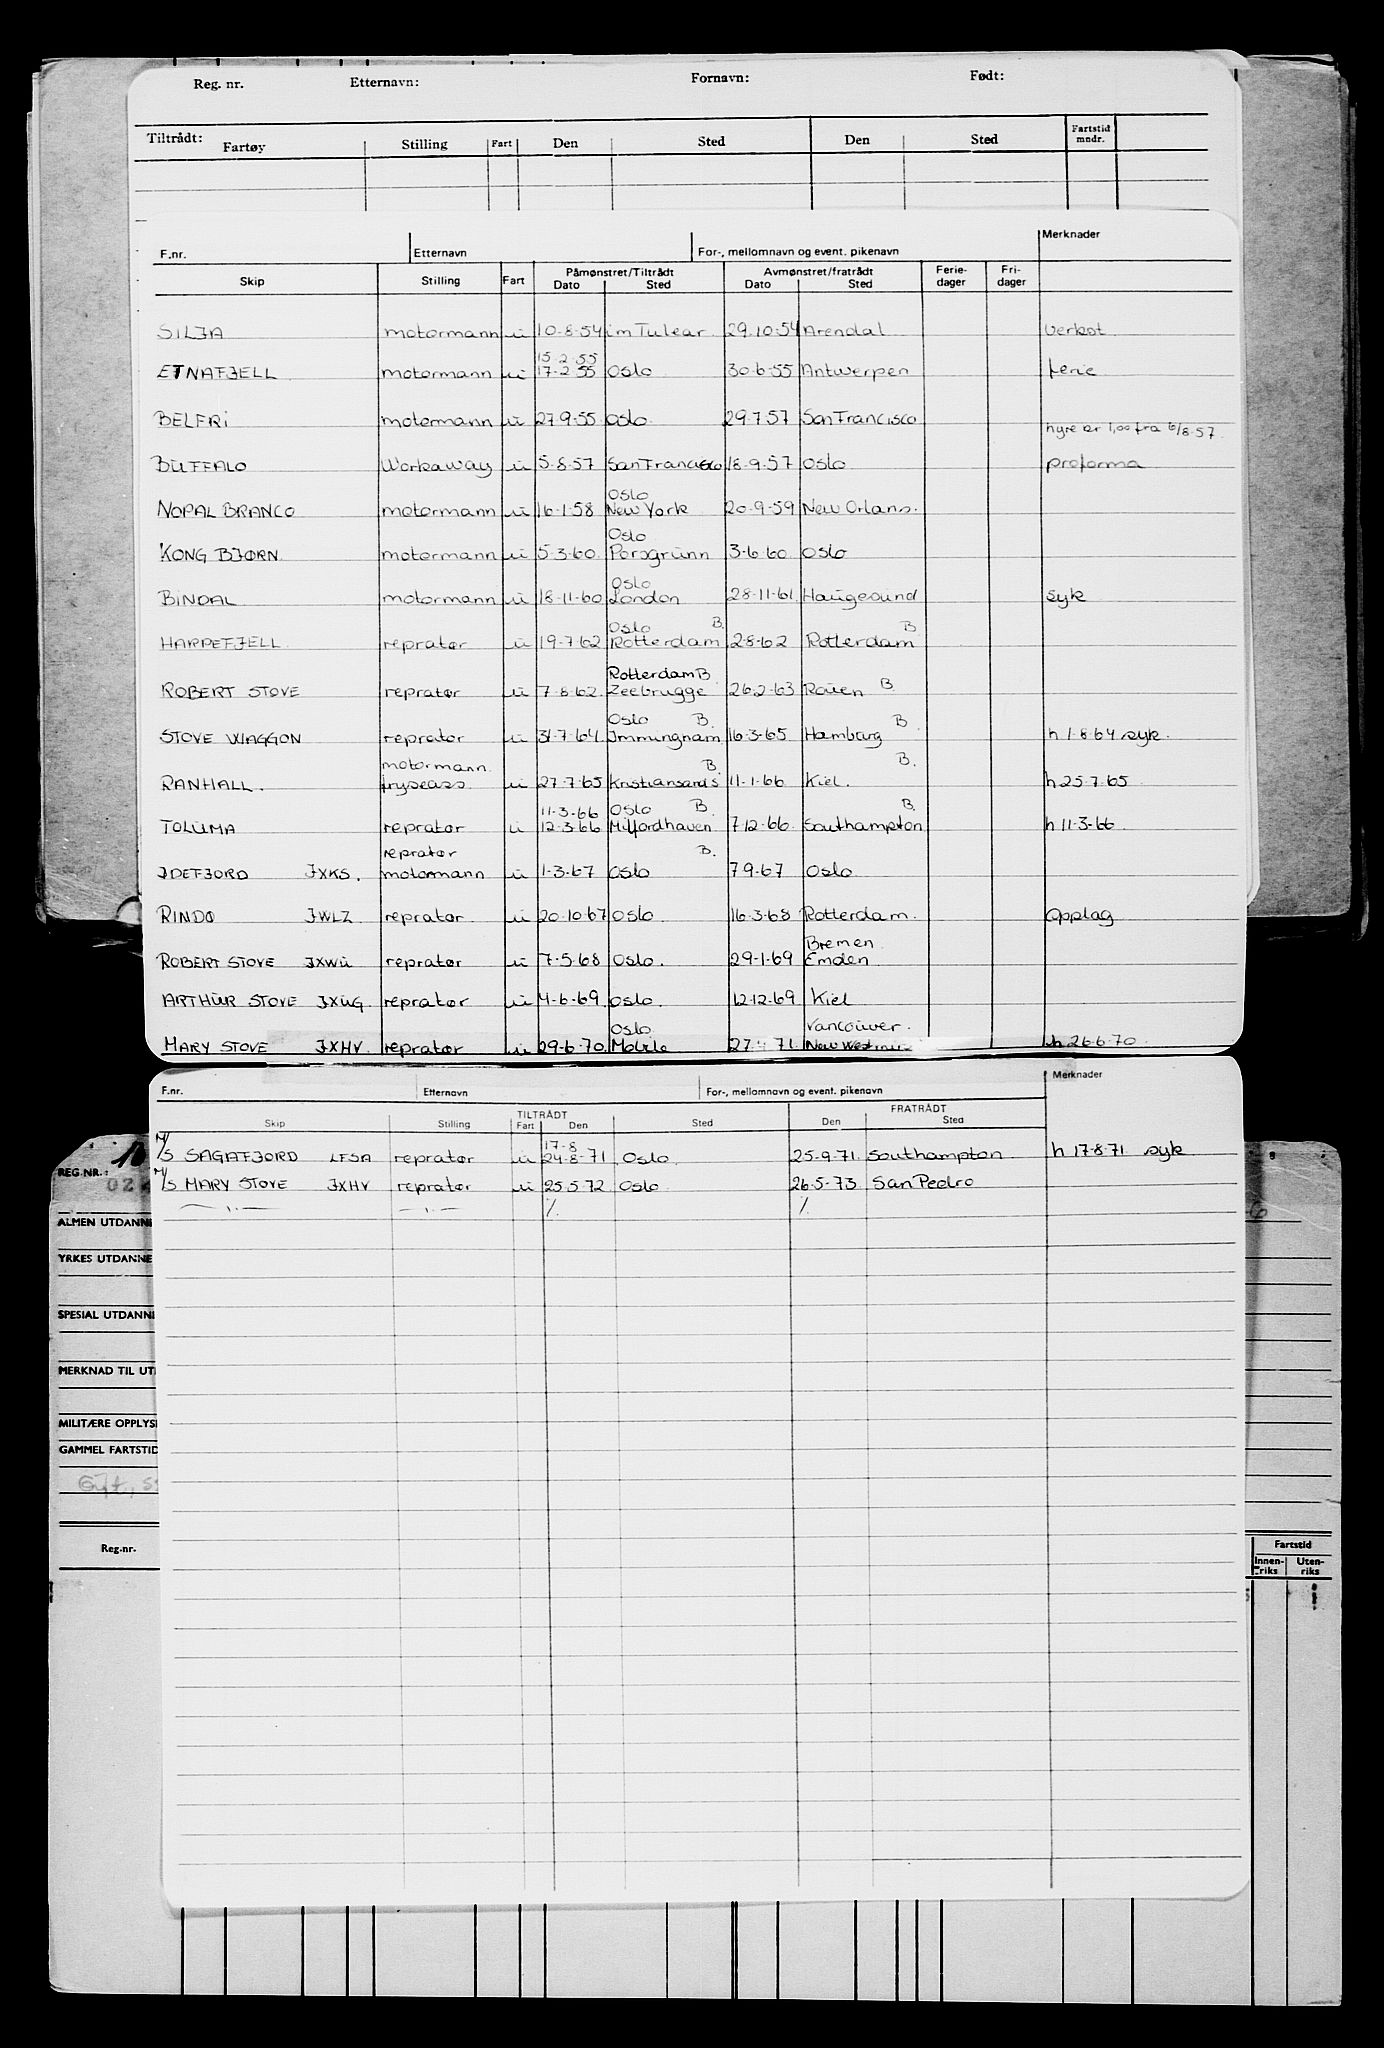 Reg. nr. Etternavn: Fornavn: Født:
Tiltrådt: Fartøy Stilling Fart Den Sted Den Sted Fartstid mndr.
F.nr. Etternavn For-, mellomnavn og event. pikenavn Merknader
Skip Stilling Fart Påmønstret/Tiltrådt Dato Sted Avmønstret/fratrådt Dato Sted Ferie-dager Fri-dager
SILJA motormann u 10-8-54 im Tulear. 29.10.54 Arendal
15.2.55
ETNAFJELL motormann u 17-2-55 Oslo 30-6-55 Antwerpen ferie
BELFRI motormann u 27-9-55 Oslo. 29.7.57 San Francisco
hyre kr 1,00 fra 6/8-57
BUFFALO Workaway u 5-8-57 San Francisco 18.9.57 Oslo proforma
Oslo
NOPAL BRANCO motormann u 16-1-58 New York 20-9-59 New Orlans.
Oslo
KONG BJØRN motormann u 5-3-60 Porsgrunn 3-6-60 Oslo
Oslo
BINDAL motormann u 18-11-60 London 28-11-61 Haugesund syk
Oslo B. B
HARPEFJELL reprator u 19-7-62 Rotterdam 2-8-62 Rotterdam
Rotterdam B
ROBERT STOVE reprator u 7-8-62 Zeebrugge 26.2-63 Rouen B
Oslo B. B
STOVE WAGGON reprator u 31-7-64 Immingham 16-3-65 Hamburg h 1-8-64 syk.
motormann. B B.
RANHALL. fryseass. u 27-7-65 Kristiansand S 11-1-66 Kiel. h 25-7-65
11-3-66 Oslo B. B.
TOLUMA reprator u 12-3-66 Milfordhaven 7.12-66 Southampton h 11-3-66
reprator B.
IDEFJORD JXKS. motormann u 1-3-67 Oslo 7.9-67 Oslo
RINDØ JWLZ reprator u 20-10-67 Oslo 16-3-68 Rotterdam. Opplag
Bremen
ROBERT STOVE JXWU reprator u 7-5-68 Oslo. 29-1-69 Emden
ARTHUR STOVE JXUG. reprator u 4-6-69 Oslo. 12-12-69 Kiel
Oslo Vancouver.
MARY STOVE JXHV. reprator u 29-6-70 Mobile h 26-6-70
F.nr. Etternavn For-, mellomnavn og event. pikenavn Merknader
Skip Stilling TILTRÅDT Fart Den Sted FRATRÅDT Den Sted
17-8
M/S SAGAFJORD LFSA reprator u 24-8-71 Oslo 25-9-71 Southampton h 17-8-71 syk
M/S MARY STOVE JXHV reprator u 25-5-72 Oslo 26-5-73 San Pedro
—"— —"— %. %
REG.NR.:
ALMEN UTDANNE
YRKES UTDANNE
SPESIAL UTDANNE
MERKNAD TIL UT
MILITÆRE OPPLYS
GAMMEL FARTSTID
Gift,
Reg.nr. Fartstid
Innen-riks Uten-riks